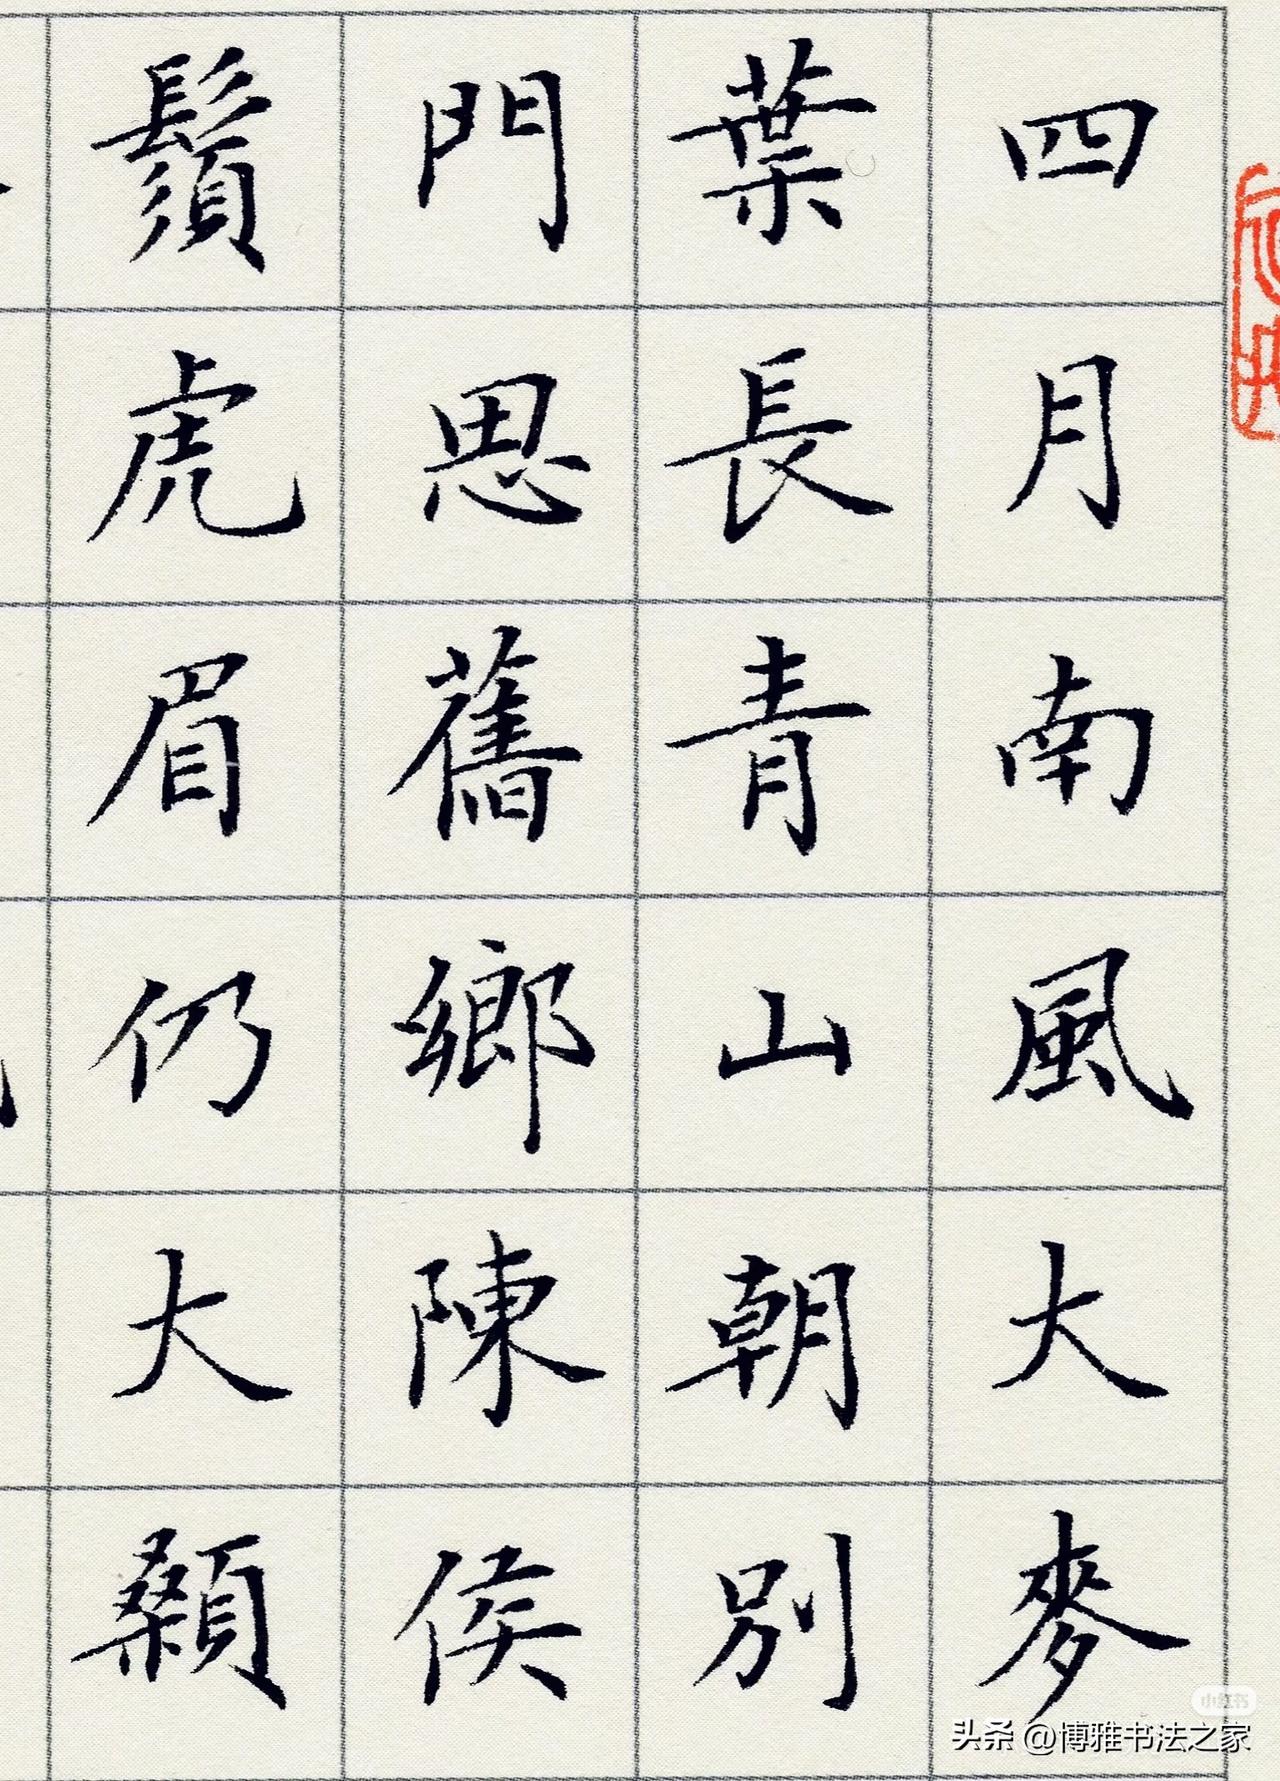 四月南風大麥
葉長青山朝別
門思舊鄉陳侯
鬚虎眉仍大顙
小红书
头条 @博雅书法之家